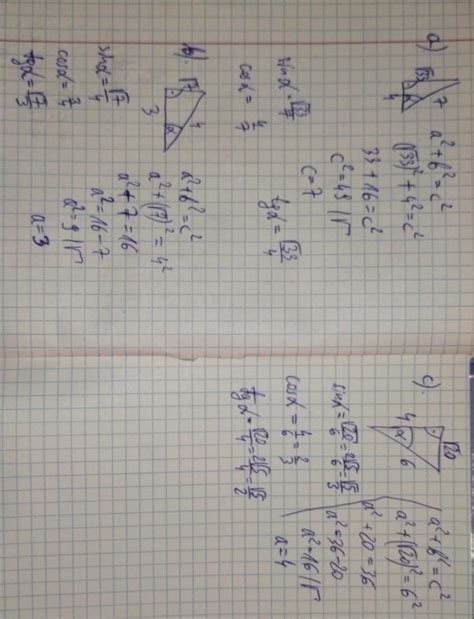 a)
√33
7
4
α
a²+b²=c²
(√33)²+4²=c²
33+16=c²
c²=49 |√
c=7
sinα=√33/7
cosα=4/7
tgα=√33/4
b)
√7
4
3
α
a²+b²=c²
a²+(√7)²=4²
a²+7=16
a²=16-7
a²=9 |√
a=3
sinα=√7/4
cosα=3/4
tgα=√7/3
c)
√20
4
α
6
a²+b²=c²
a²+(√20)²=6²
a²+20=36
a²=36-20
a²=16 |√
a=4
sinα=√20/6=2√5/6=√5/3
cosα=4/6=2/3
tgα=√20/4=2√5/4=√5/2